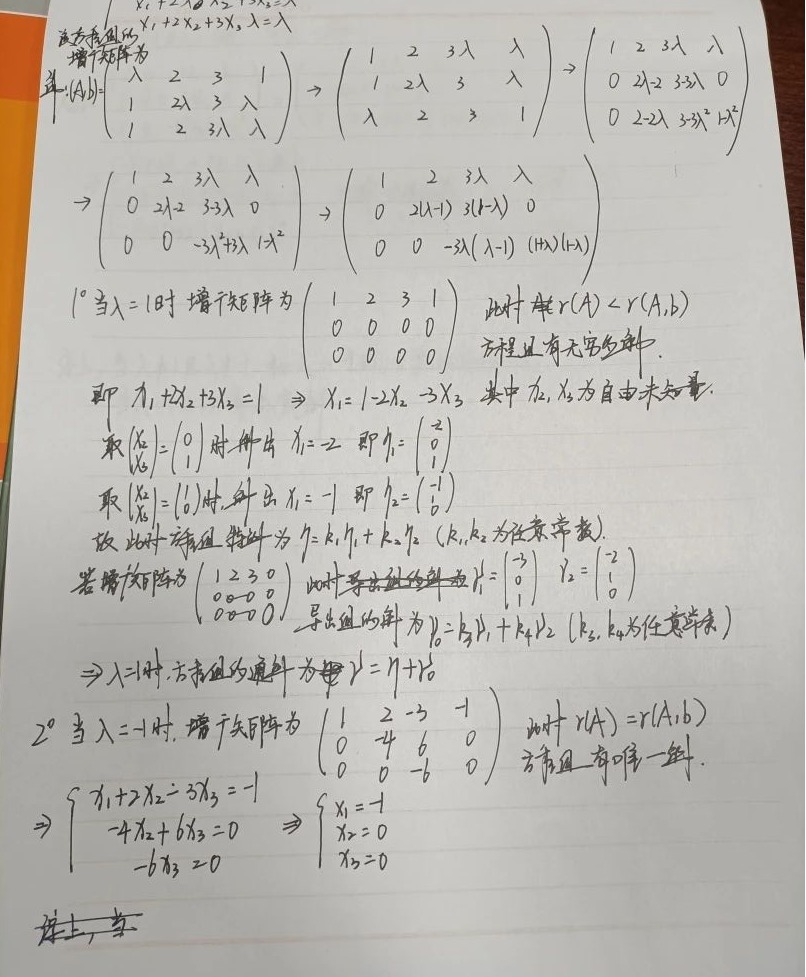 x₁+2x₂+3x₃λ=λ
该方程组的
增广矩阵为
解:(A,b)= ( λ 2 3 1 ; 1 2λ 3 λ ; 1 2 3λ λ ) → ( 1 2 3λ λ ; 1 2λ 3 λ ; λ 2 3 1 ) → ( 1 2 3λ λ ; 0 2λ-2 3-3λ 0 ; 0 2-2λ 3-3λ² 1-λ² )
→ ( 1 2 3λ λ ; 0 2λ-2 3-3λ 0 ; 0 0 -3λ²+3λ 1-λ² ) → ( 1 2 3λ λ ; 0 2(λ-1) 3(1-λ) 0 ; 0 0 -3λ(λ-1) (1+λ)(1-λ) )
1° 当λ=1时 增广矩阵为 ( 1 2 3 1 ; 0 0 0 0 ; 0 0 0 0 ) 此时 r(A)<r(A,b)
方程组有无穷多解.
即 x₁+2x₂+3x₃=1 ⇒ x₁=1-2x₂-3x₃ 其中x₂,x₃为自由未知量.
取(x₂ ; x₃)=(0 ; 1)时,解出 x₁=-2 即η₁=(-2 ; 0 ; 1)
取(x₂ ; x₃)=(1 ; 0)时,解出 x₁=-1 即η₂=(-1 ; 1 ; 0)
故此时方程组特解为 η=k₁η₁+k₂η₂ (k₁,k₂为任意常数).
若增广矩阵为 ( 1 2 3 0 ; 0 0 0 0 ; 0 0 0 0 ) 此时导出组的解为 γ₁=(-3 ; 0 ; 1) γ₂=(-2 ; 1 ; 0)
导出组的解为γ₀=k₃γ₁+k₄γ₂ (k₃,k₄为任意常数)
⇒λ=1时,方程组的通解为 γ=η+γ₀
2° 当λ=-1时,增广矩阵为 ( 1 2 -3 -1 ; 0 -4 6 0 ; 0 0 -6 0 ) 此时r(A)=r(A,b)
方程组有唯一解.
⇒ { x₁+2x₂-3x₃=-1 ; -4x₂+6x₃=0 ; -6x₃=0 ⇒ { x₁=-1 ; x₂=0 ; x₃=0
综上,当